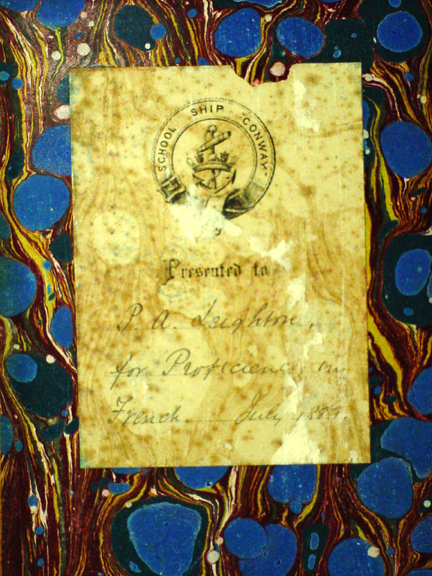 SCHOOL SHIP CONWAY
Presented to
P. A. Leighton
for Proficiency in
French July